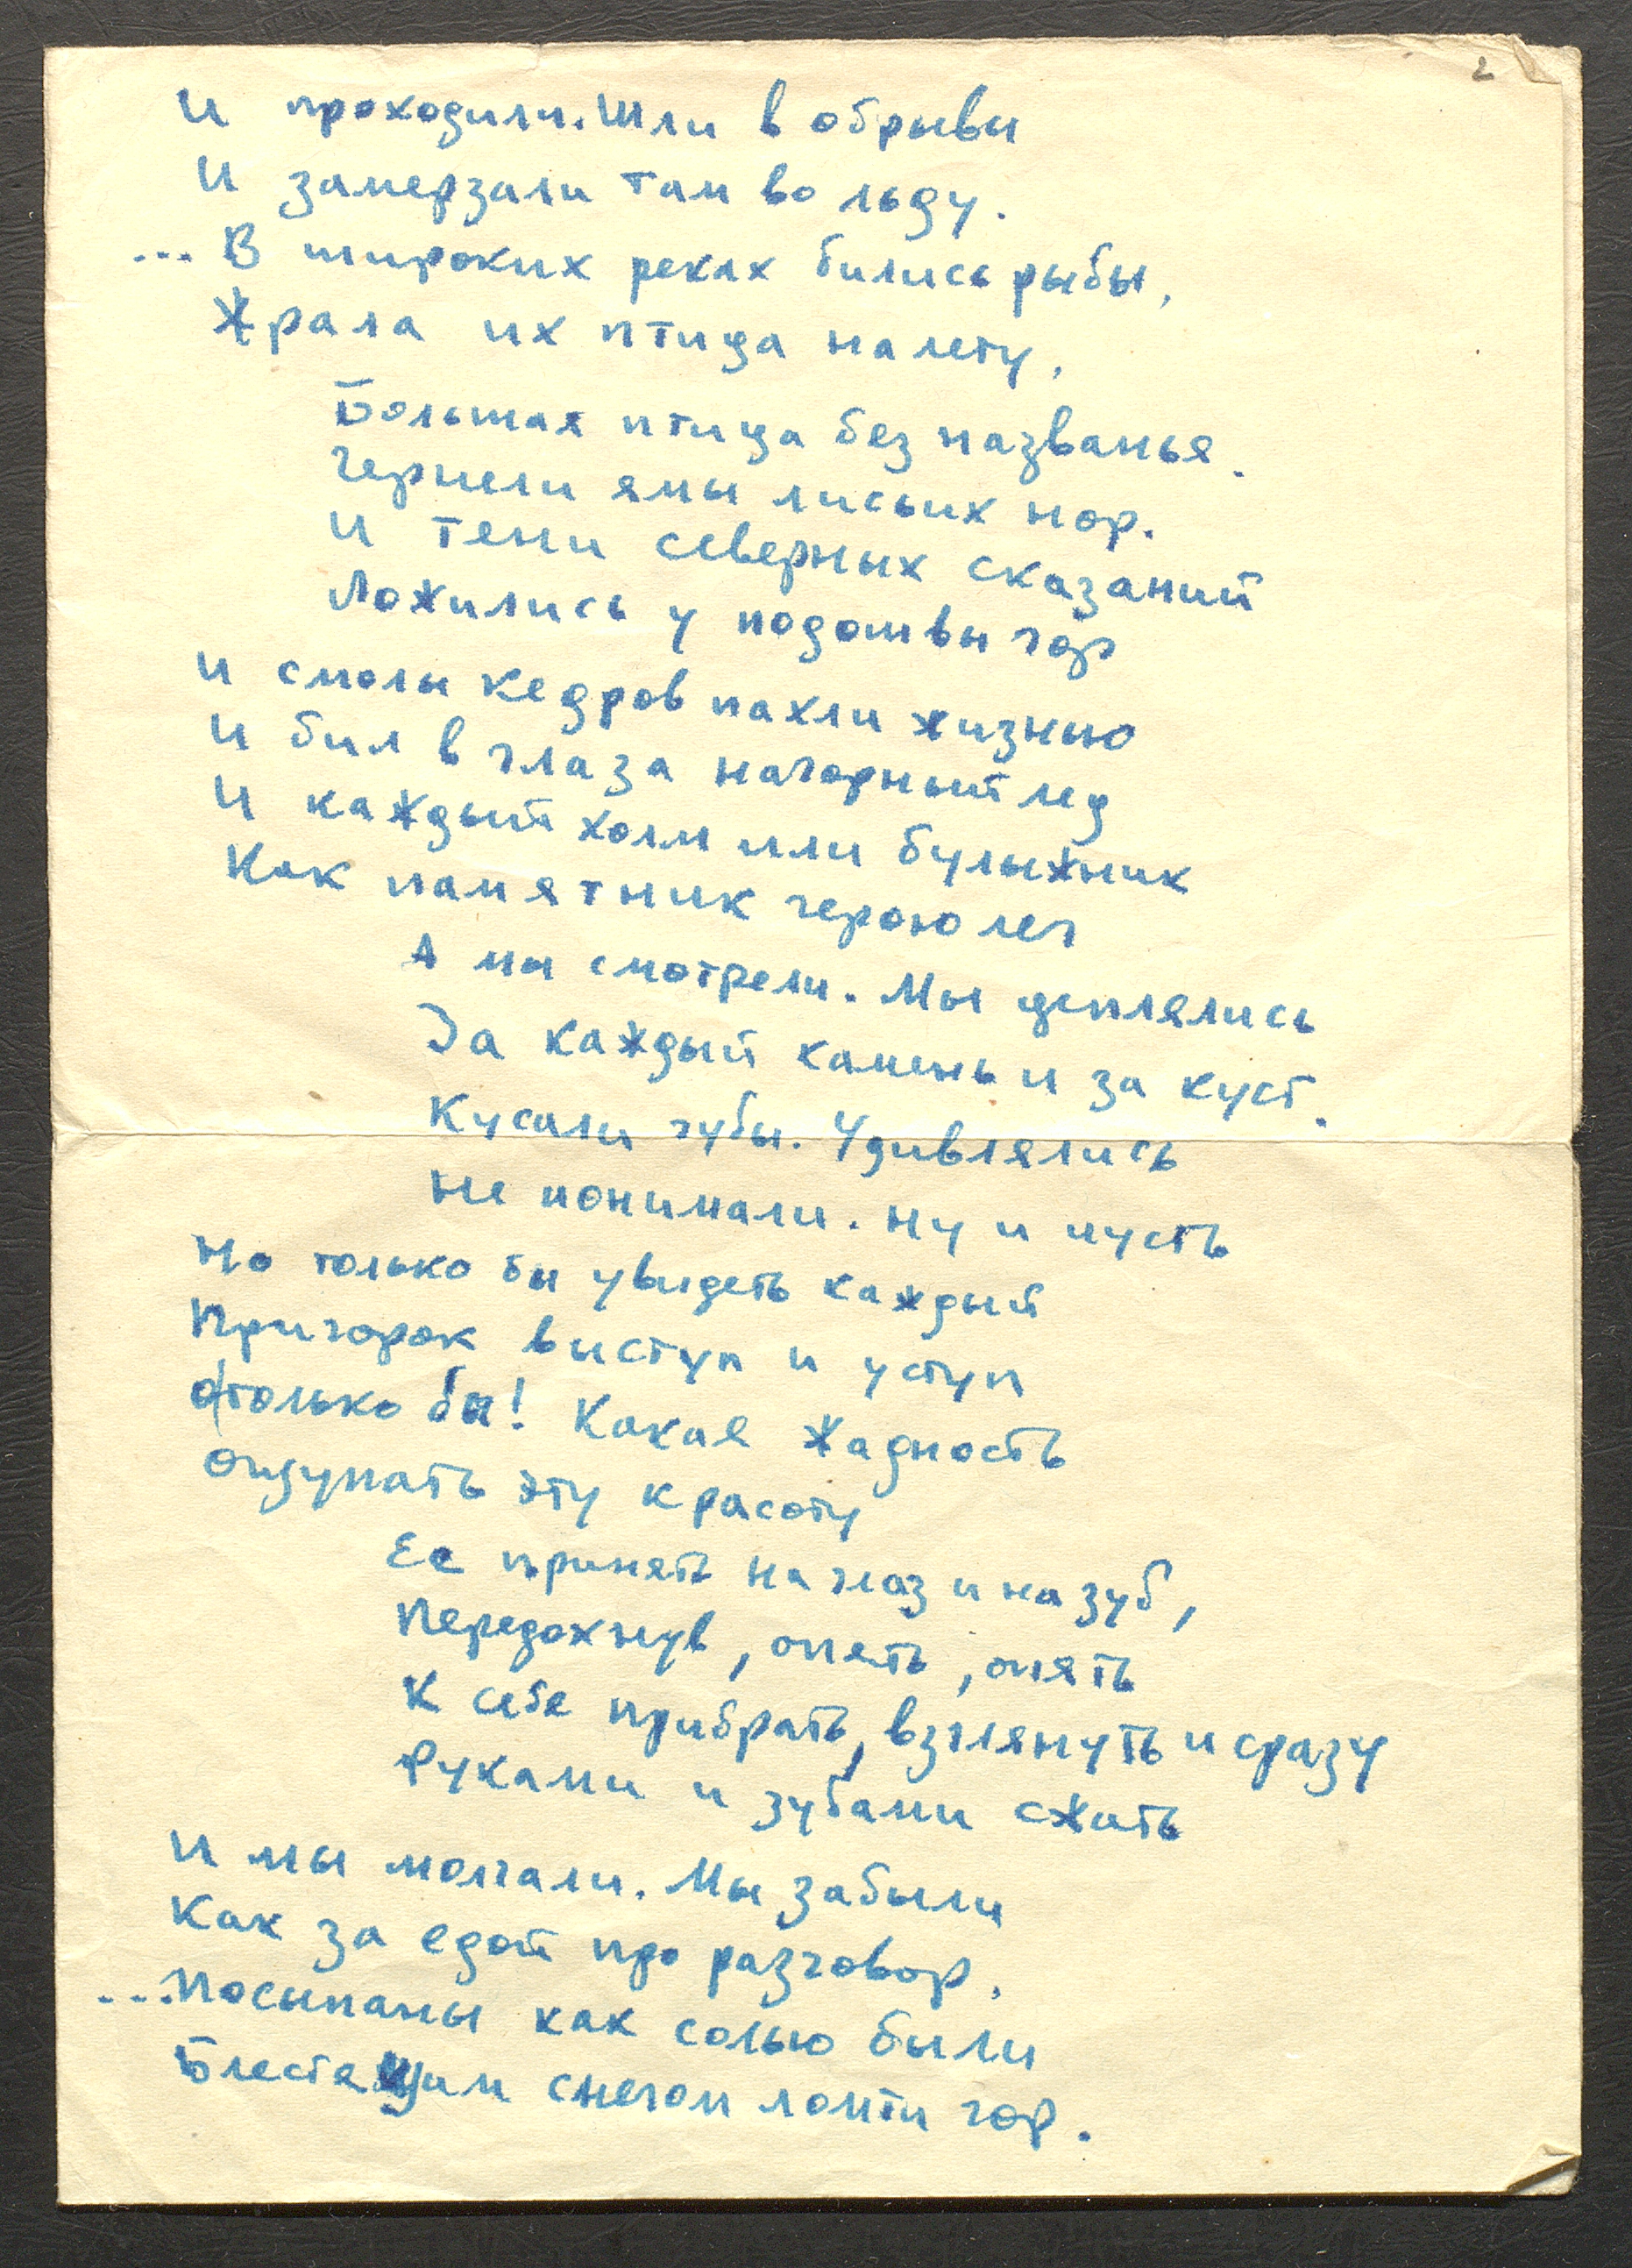 2
И проходили. Шли в обрывы
И замерзали там во льду.
... В широких реках бились рыбы,
Жрала их птица на лету,
Большая птица без названья.
Чернели ямы лисьих нор.
И тени северных сказаний
Ложились у подошвы гор
И смолы кедров пахли жизнью
И бил в глаза нагорный лед
И каждый холм или булыжник
Как памятник герою лег
А мы смотрели. Мы цеплялись
За каждый камень и за куст.
Кусали губы. Удивлялись
Не понимали. Ну и пусть
Но только бы увидеть каждый
Пригорок выступ и уступ
О только бы! Какая жадность
Ощупать эту красоту
Ее принять на глаз и на зуб,
Передохнув, опять, опять
К себе прибрать, взглянуть и сразу
Руками и зубами сжать
И мы молчали. Мы забыли
Как за едой про разговор.
...Посыпаны как солью были
Блестящим снегом ломти гор.